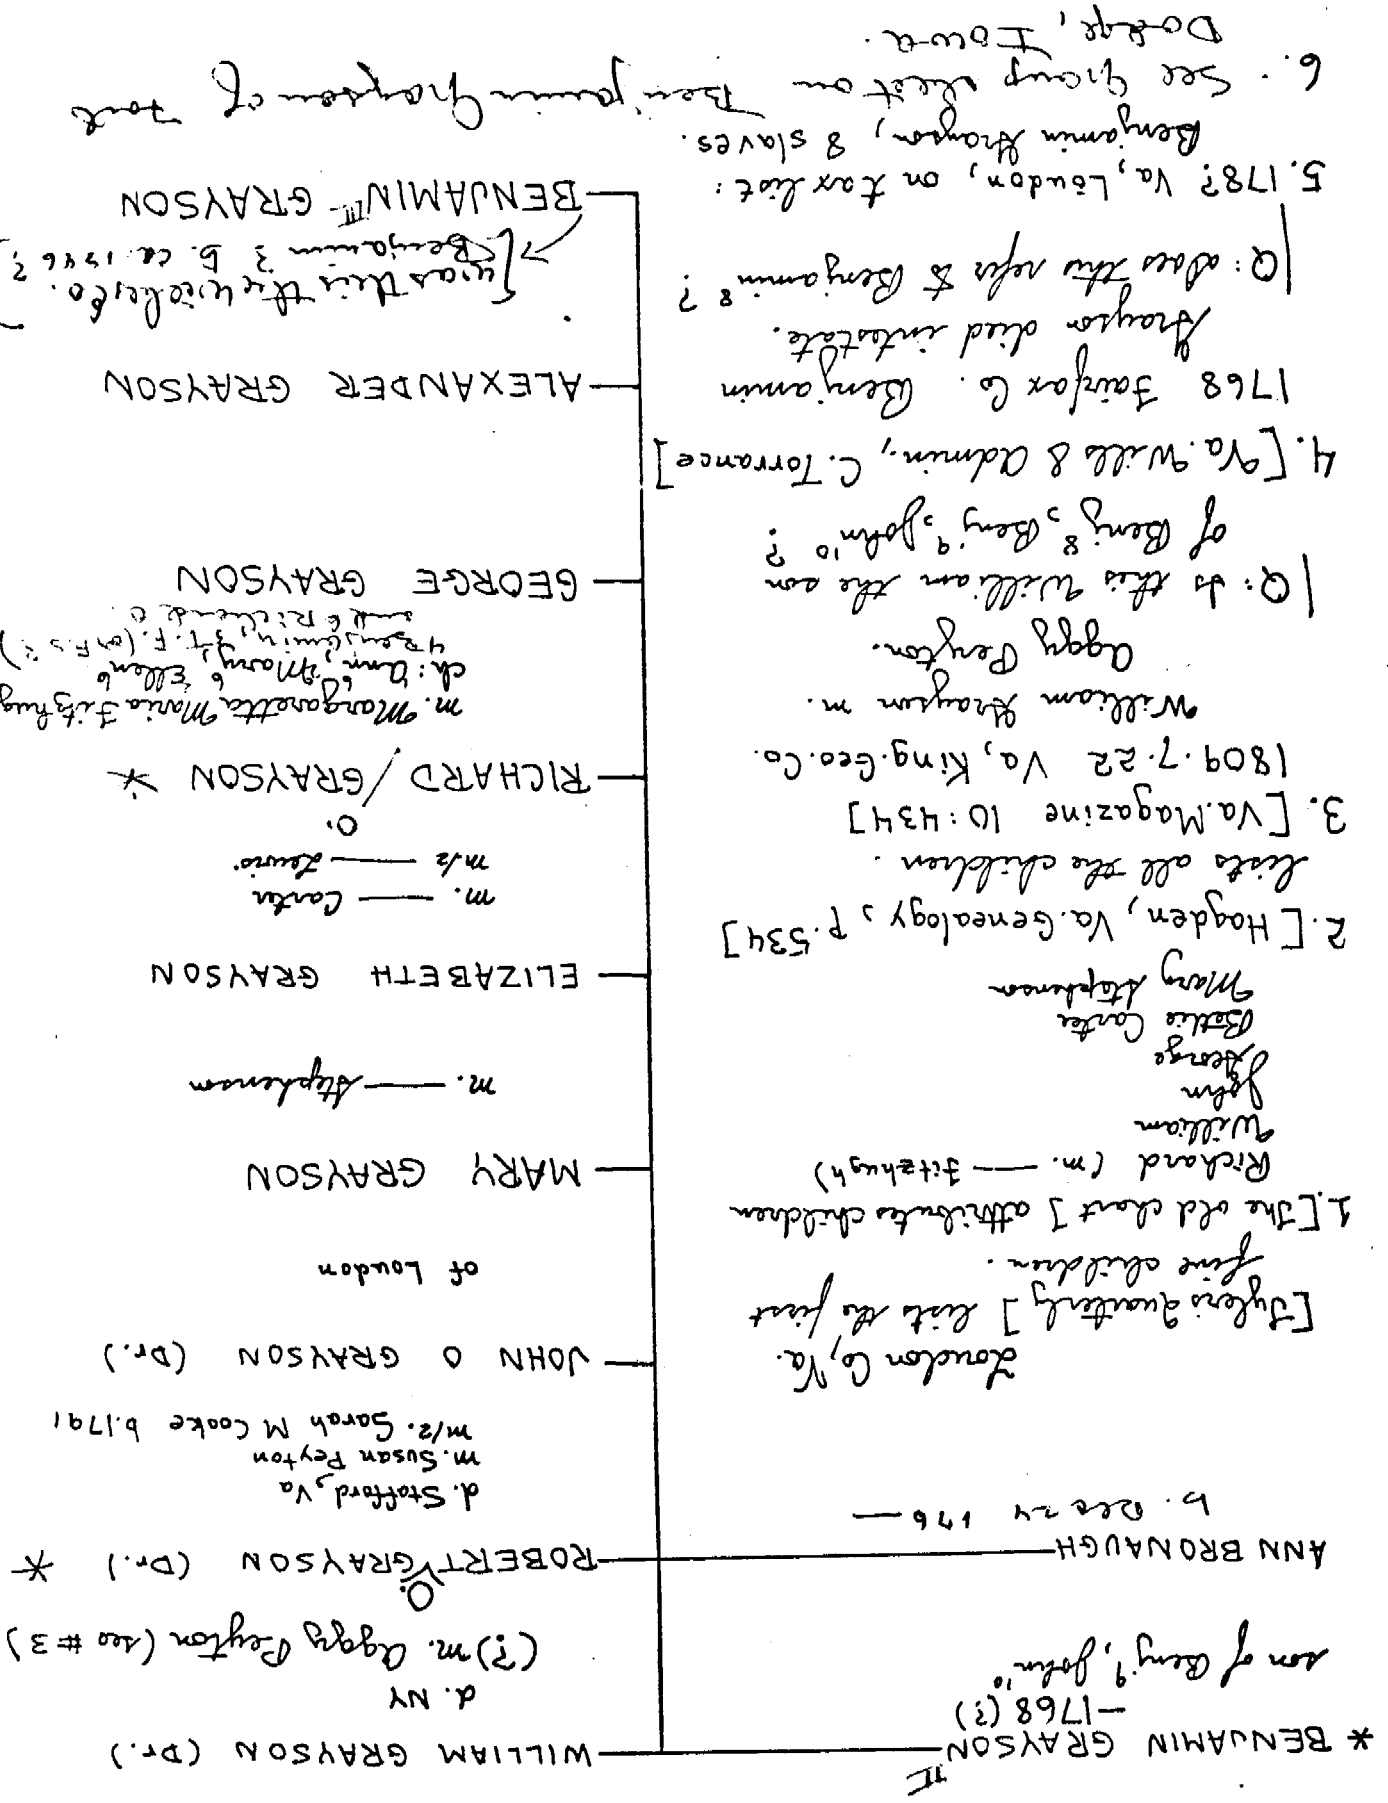 II
* BENJAMIN GRAYSON
—1768 (?)
son of Benj⁹, John¹⁰
ANN BRONAUGH
b. Dec 24 176—
Loudon Co, Va.
[Tylers Quarterly] lists the first
five children.
1. [The old chart] attributes children
Richard (m. — Fitzhugh)
William
John
George
Bettie Carter
Mary Stephenson
2. [Hayden, Va. Genealogy, P. 534]
lists all the children.
3. [Va. Magazine 10:434]
1809.7.22 Va, King. Geo. Co.
William Grayson m.
Aggy Peyton.
Q: Is this William the son
of Benj⁸, Benj⁹, John¹⁰?
4. [Va. Wills & Admin., C. Torrance]
1768 Fairfax Co. Benjamin
Grayson died intestate.
Q: does this refer to Benjamin⁸?
5. 178? Va, Loudon, on tax list:
Benjamin Grayson, 8 slaves.
6. See Group sheet on Benjamin Grayson of Fort
Dodge, Iowa.
WILLIAM GRAYSON (Dr.)
d. NY
(?) m. Aggy Peyton (see #3)
O.
ROBERT GRAYSON (Dr.) *
d. Stafford, Va
m. Susan Peyton
m/2. Sarah M Cooke b. 1791
JOHN O GRAYSON (Dr.)
of Loudon
MARY GRAYSON
m. — Stephenson
ELIZABETH GRAYSON
m. — Carter
m/2 — Lewis
O.
RICHARD / GRAYSON *
m. Margaretta Maria Fitzhug
ch: Ann⁶, Mary⁶, Ellen⁶
4 Benjamin, 5 T. F. (or F.S?)
and 6 Richard O
GEORGE GRAYSON
ALEXANDER GRAYSON
[was this the Wilkes Co.
Benjamin 3 b. ca 1746?]
BENJAMIN III GRAYSON